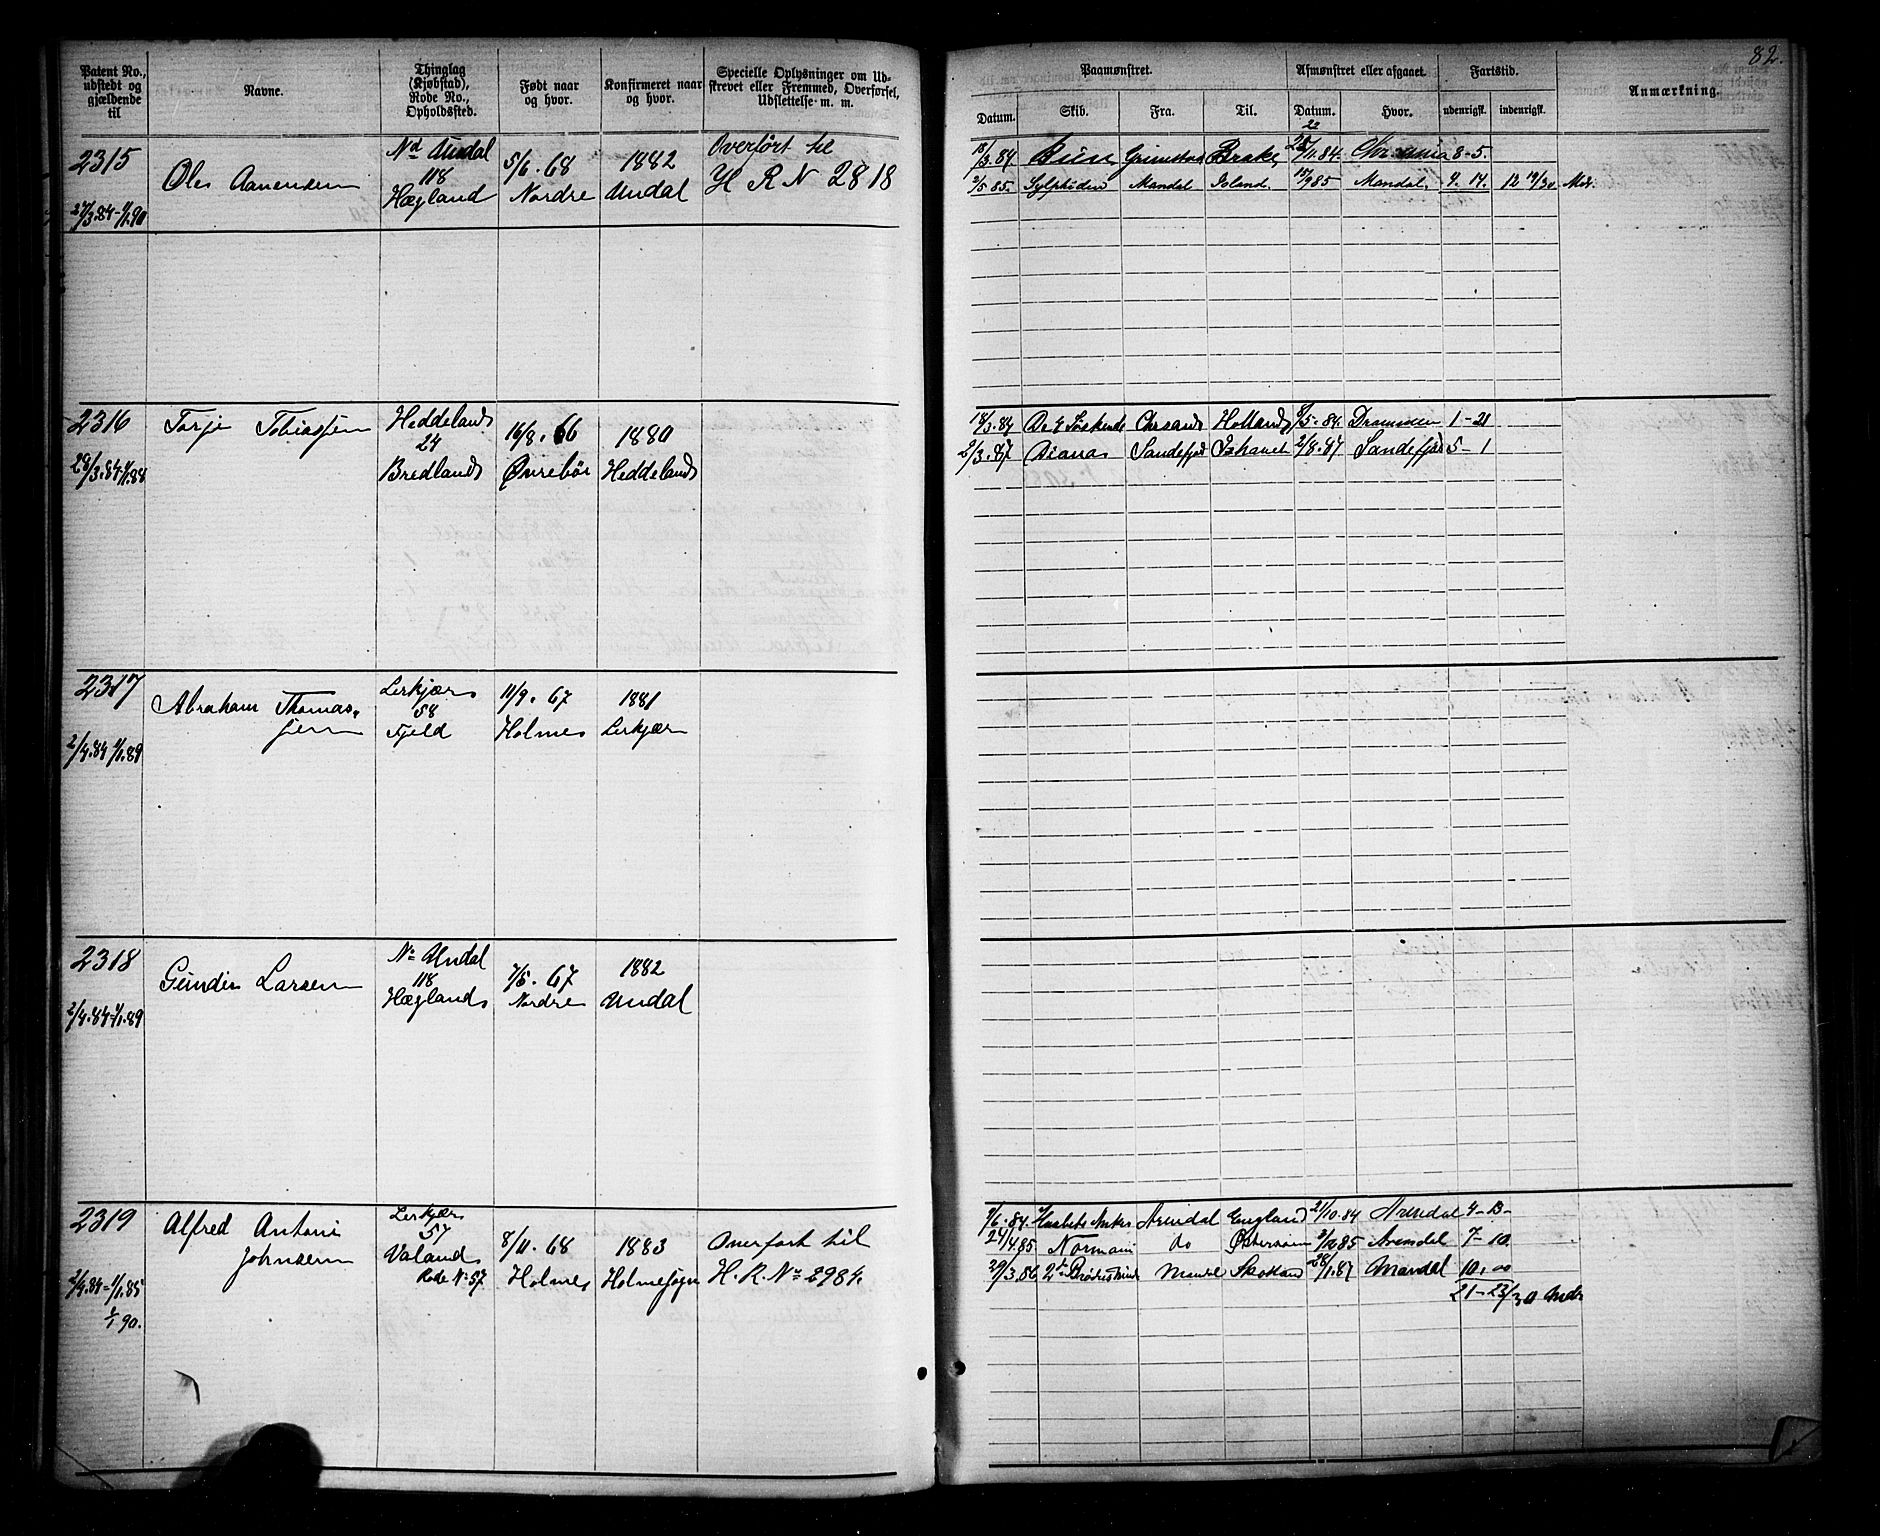 82.
Patent No., udstedt og gjældende til
Navne.
Thinglag (Kjøbstad), Rode No., Opholdssted.
Født naar og hvor.
Konfirmeret naar og hvor.
Specielle Oplysninger om Udskrevet eller Fremmed, Overførsel, Udslettelse m. m.
Paamønstret.
Afmønstret eller afgaaet.
Fartstid.
Anmærkning.
Datum.
Skib.
Fra.
Til.
Datum.
Hvor.
udenrigsk.
indenrigsk.
2315
27/3.84-1/1.90
Ole Aanensen
Nd Undal
118
Hægland
5/6.68
Nordre
1882
Undal
Overført til
H R N 2818
18/3.84 Grimstad Brake 22 /11.84 8-5.
2/5 85. Sylphiden Mandal Island. 15/9 85 Mandal. 4. 14. 12 19/30 Mdr.
2316
28/3.84-1/1.88
Tarje Tobiassen
Heddeland
24
Bredland
16/8.66
Øvrebø
1880
Heddeland
18/3.84 De 4 Søskende Chrsand Holland /5-84. Drammen 1-21
2/3.87 Diana Sandefjord Ishavet 2/8.87 Sandefjord 5-1
2317
2/4.84 1/1.89
Abraham Thomas-
sen
Lerkjær
58
Fjeld
11/9.67
Holme
1881
Lerkjær
2318
2/4.84-1/1.89
Gunder Larsen
No Undal
118
Hægland
7/5.67
Nordre
1882
Undal
2319
2/4.84-1/1.85
1/1 90.
Alfred Antoni
Johnsen
Lerkjær
57
Valand
Rode No 57
8/11.68
Holme
1883
Holme sogn
Overført til
H. R. No 2984.
/6.84. Haabets Anker Arendal England 21/10.84 Arendal 4-13-
24/4.85 Normani do Østersøen /12 85 Arendal 7-10
29/3.86 2de Brødre Mandal Skotland 28/1.87 Mandal 10.00
21-23/30 Mdr